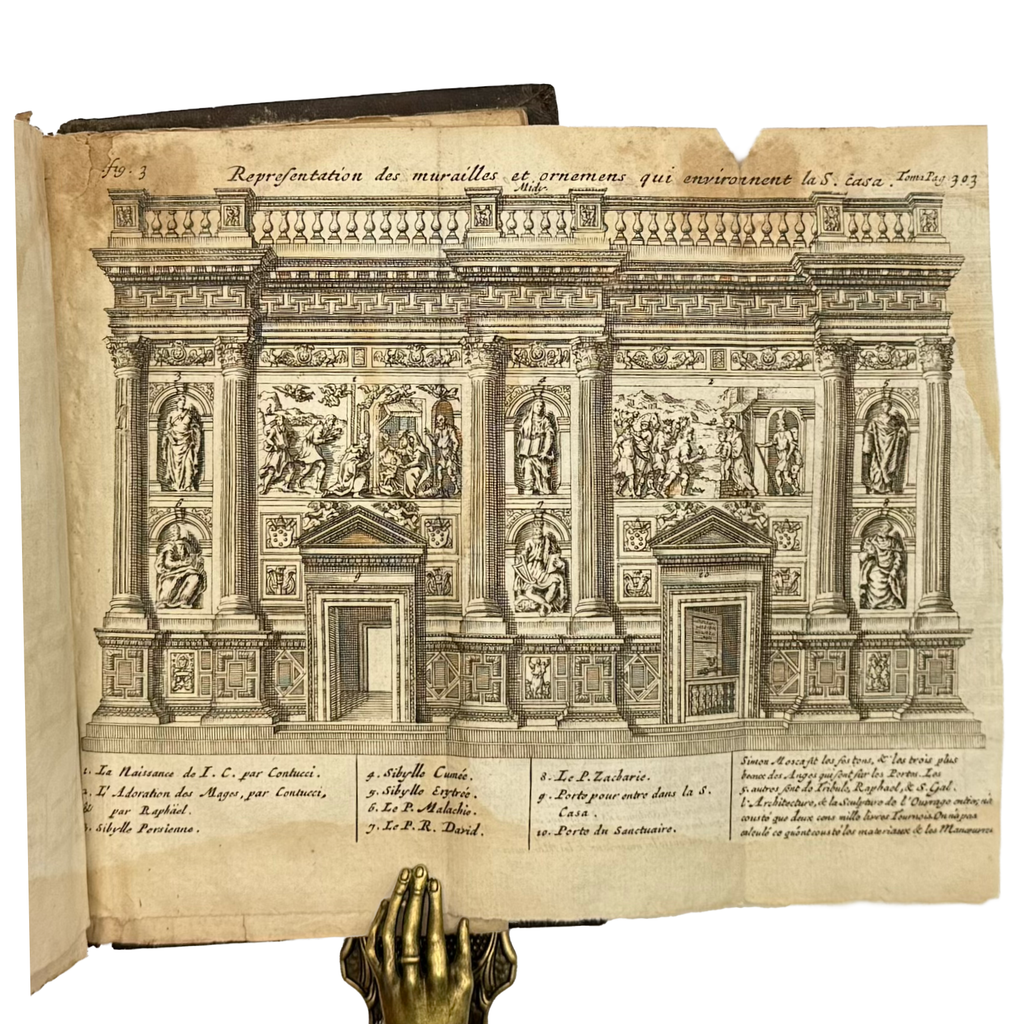 fig. 3
Representation des murailles et ornemens qui environnent la S. casa. Tom 2 Pag 303
Midy
3
1
4
2
5
6
7
8
9
10
1. La Naissance de I. C. par Contucci.
2. L'Adoration des Mages, par Contucci,
& par Raphäel.
3. Sibylle Persienne.
4. Sibylle Cumée.
5. Sibylle Erytrée.
6. Le P. Malachie.
7. Le P. R. David.
8. Le P. Zacharie.
9. Porte pour entre dans la S.
Casa.
10. Porte du Sanctuaire.
Simon Mosca fit les festons, & les trois plus
beaux des Anges qui sont sur les Portes. Les
5. autres sont de Tribule, Raphael, & S. Gal.
l'Architecture, & la Sculpture de l'Ouvrage entier, n'a
cousté que deux cens mille livres Tournois. On n'a pas
calculé ce qu'ont cousté les materiaux & les Manœuvres